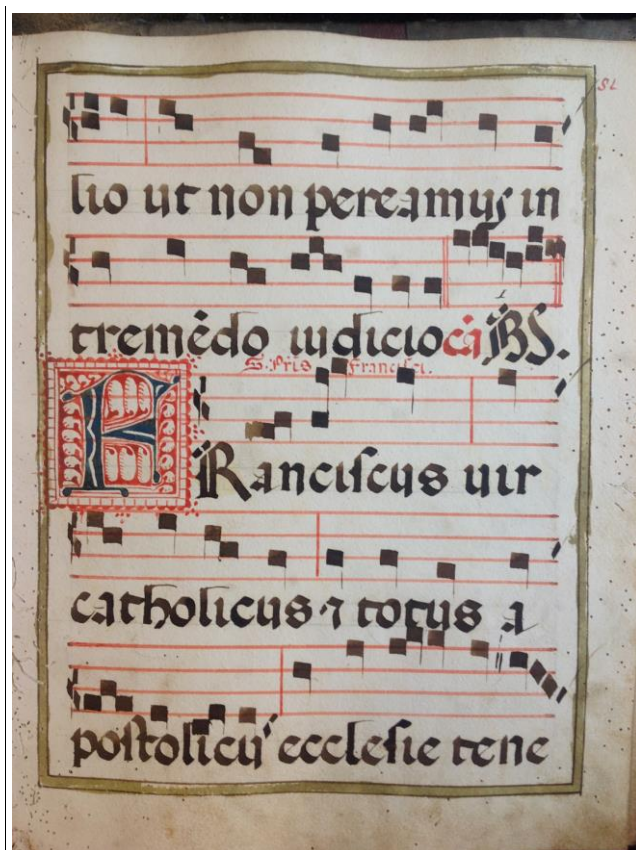 lio ut non pereamus in
tremēdo iudicio cā
S. Pris Francisci.
FRanciscus uir
catholicus ⁊ totus a
postolicu' ecclesie tene